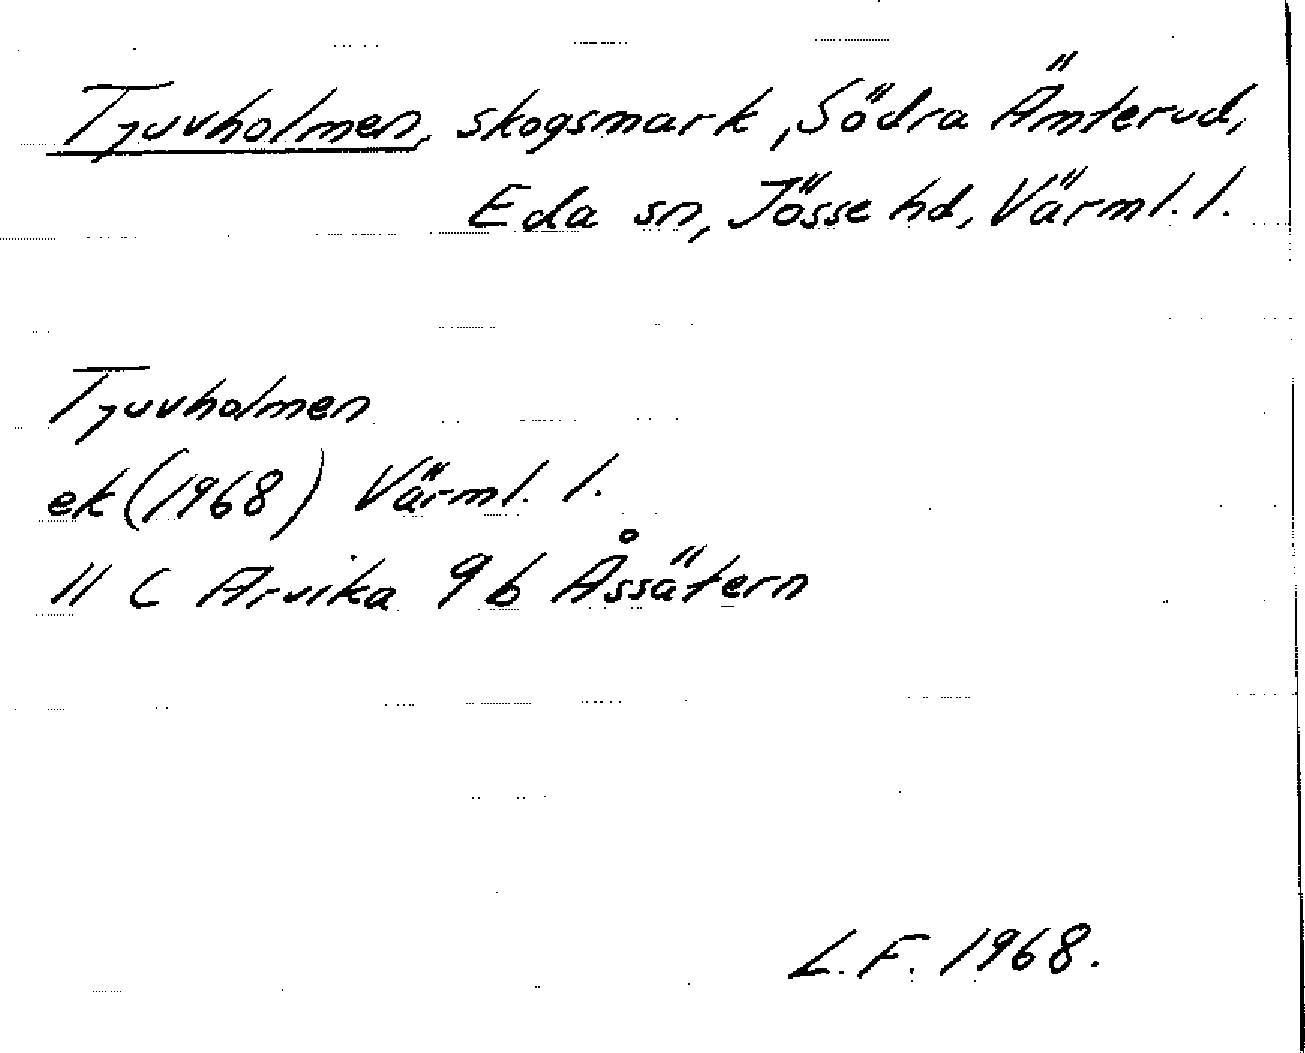 Tjuvholmen, skogsmark, Södra Ämterud,
Eda sn, Jösse hd, Värml. l.
Tjuvholmen
ek (1968) Värml. l.
11 C Arvika 9b Åssätern
L.F. 1968.